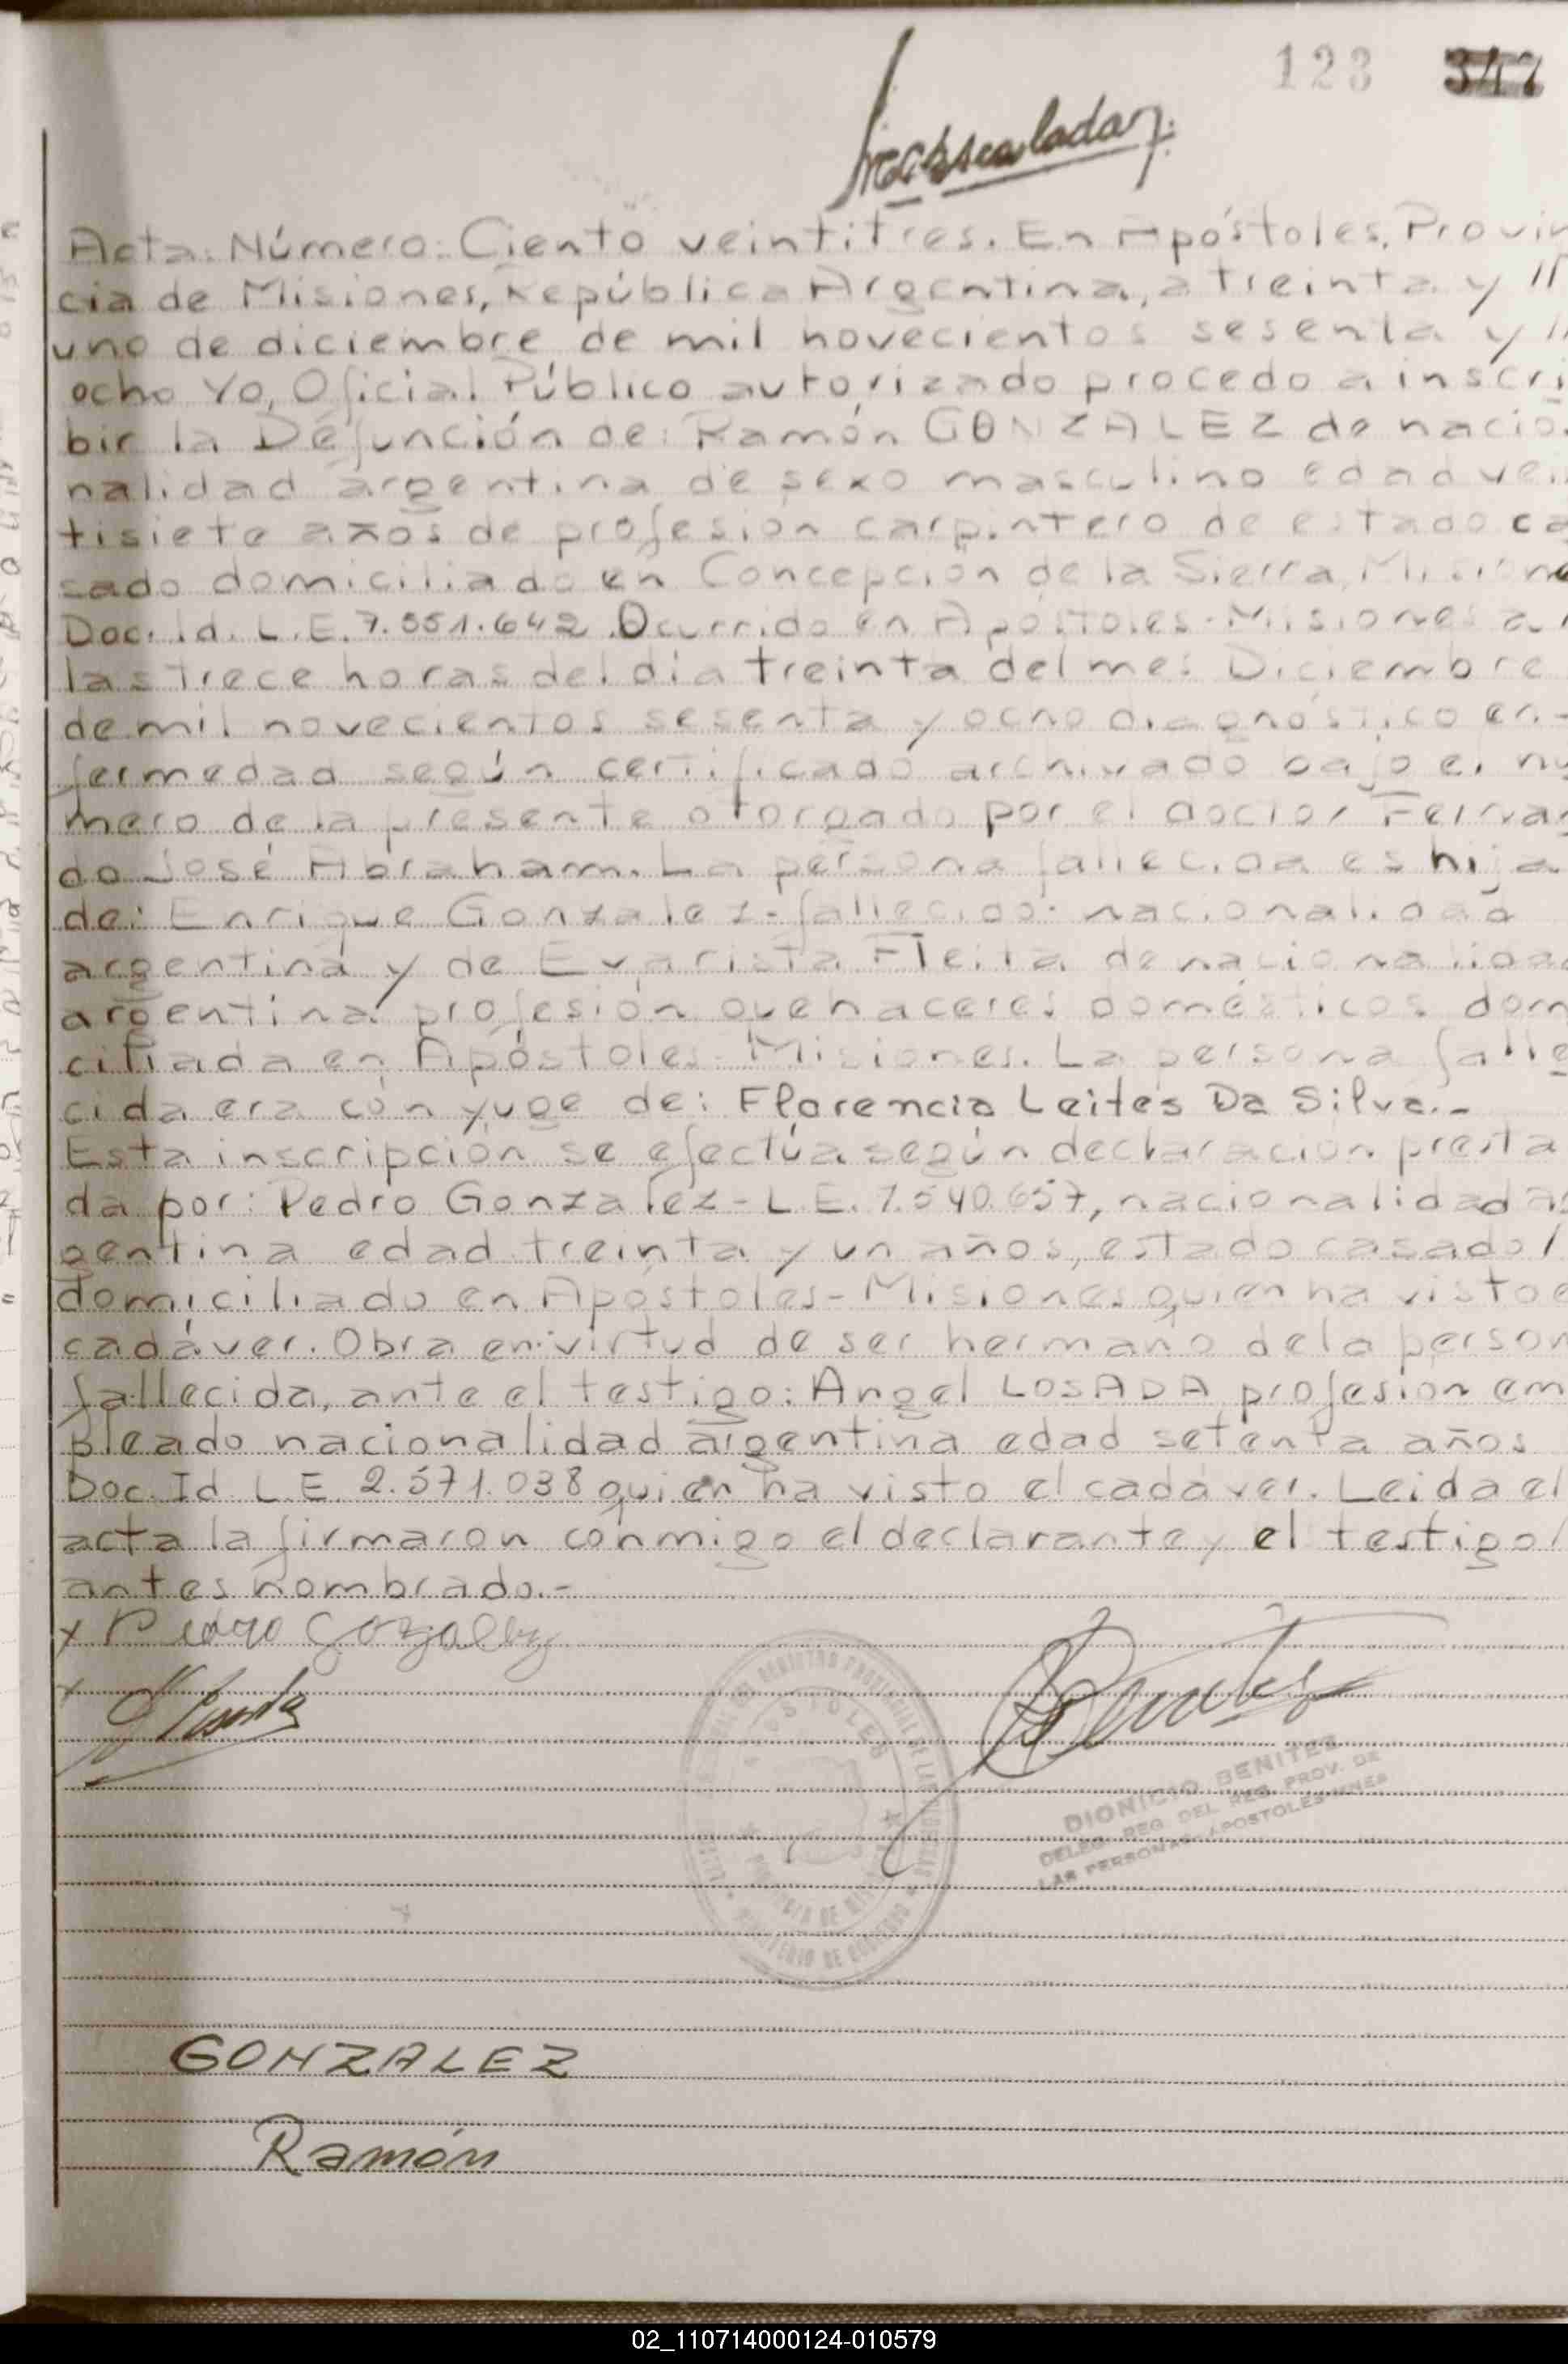 123 347
Acta: Número: Ciento veintitres. En Apóstoles, Provin
cia de Misiones, República Argentina, a treinta y //
uno de diciembre de mil novecientos sesenta y //
ocho Yo, Oficial Público autorizado procedo a inscri
bir la Defunción de: Ramón GONZALEZ de nacio
nalidad argentina de sexo masculino edad vei
tisiete años de profesión carpintero de estado ca
sado domiciliado en Concepción de la Sierra, Misione
Doc. Id. L.E. 7.551.642 Ocurrido en Apóstoles-Misiones a
las trece horas del día treinta del mes Diciembre
de mil novecientos sesenta y ocho diagnóstico en-
fermedad según certificado archivado bajo el nú
mero de la presente otorgado por el doctor Fernan
do José Abraham. La persona fallecida es hija
de: Enrique Gonzalez-fallecido- nacionalidad
argentina y de Evarista Fleita de nacionalidad
argentina profesión quehaceres domésticos domi
ciliada en Apóstoles-Misiones. La persona falle
cida era cónyuge de: Florencia Leites Da Silva.-
Esta inscripción se efectúa según declaración presta
da por: Pedro Gonzalez-L.E. 7.540.657, nacionalidad ar
gentina edad treinta y un años, estado casado /
domiciliado en Apóstoles-Misiones quien ha visto e
cadáver. Obra en virtud de ser hermano de la person
fallecida, ante el testigo: Angel LOSADA profesión em
pleado nacionalidad argentina edad setenta años
Doc. Id L.E. 2.571.038 quien ha visto el cadáver. Leida el
acta la firmaron conmigo el declarante y el testigo/
antes nombrado.-
x Pedro Gozalez
x
APOSTOLES
DIONICIO BENITEZ
DELEG. REG. DEL REG. PROV. DE
LAS PERSONAS-APOSTOLES-MNES
GONZALEZ
Ramón
02_110714000124-010579